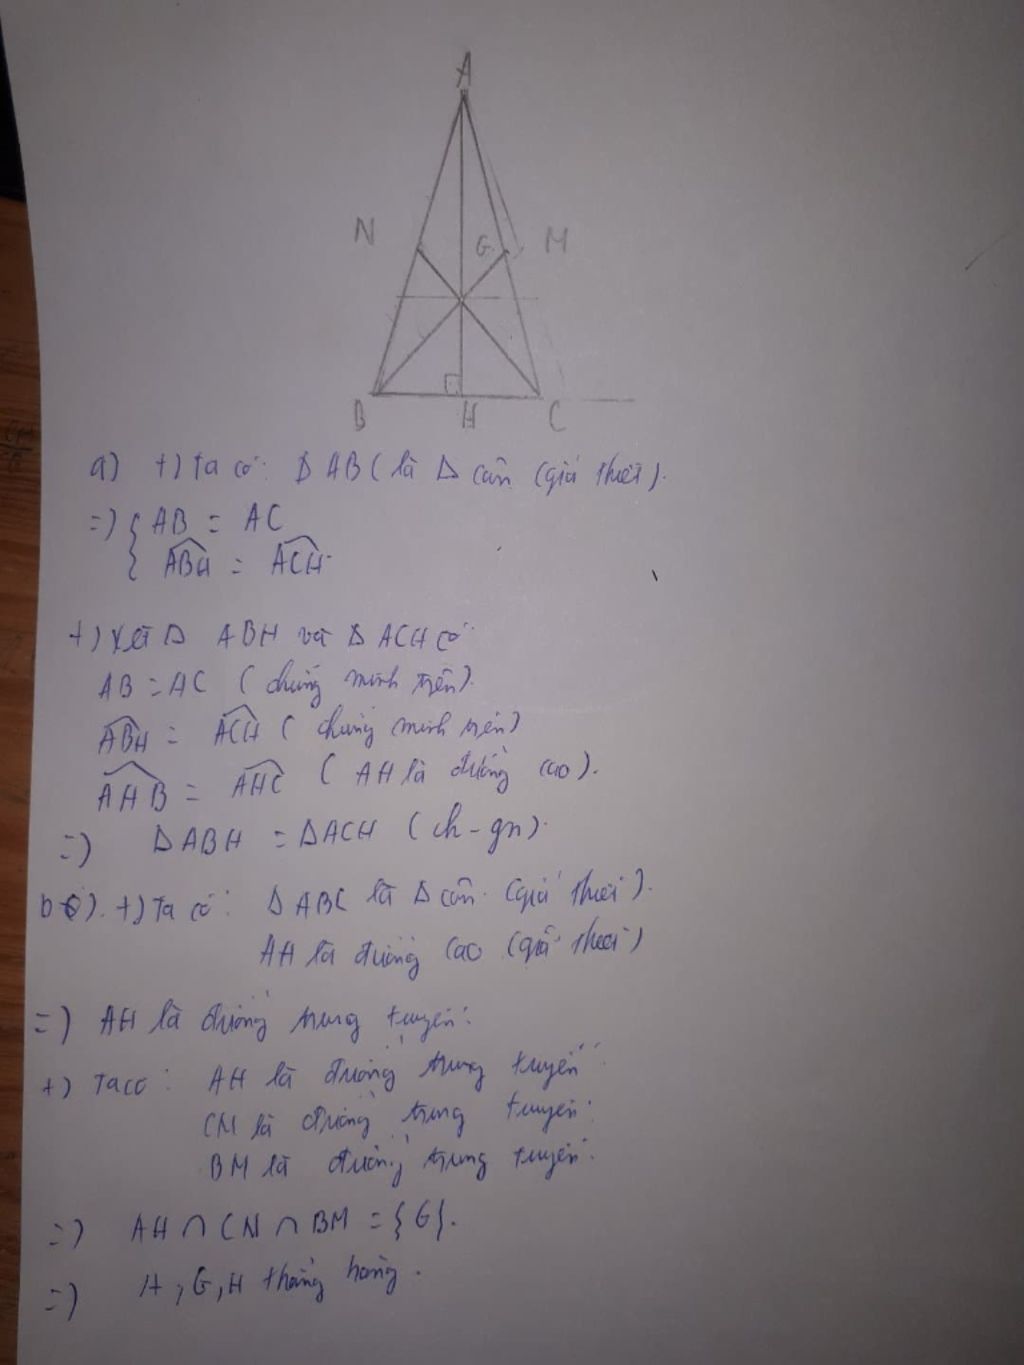 A
N
G
M
B
H
C
a) +) Ta có: Δ ABC là Δ cân (giả thiết).
=) { AB = AC
{ ABH = ACH
+) Xét Δ ABH và Δ ACH có
AB = AC (chứng minh trên).
ABH = ACH (chứng minh trên)
AHB = AHC (AH là đường cao).
=) Δ ABH = Δ ACH (ch - gn).
b). +) Ta có: Δ ABC là Δ cân. (giả thiết).
AH là đường cao (giả thiết)
=) AH là đường trung tuyến.
+) Ta có: AH là đường trung tuyến
CN là đường trung tuyến.
BM là đường trung tuyến.
=) AH ∩ CN ∩ BM = {G}.
=) A, G, H thẳng hàng.